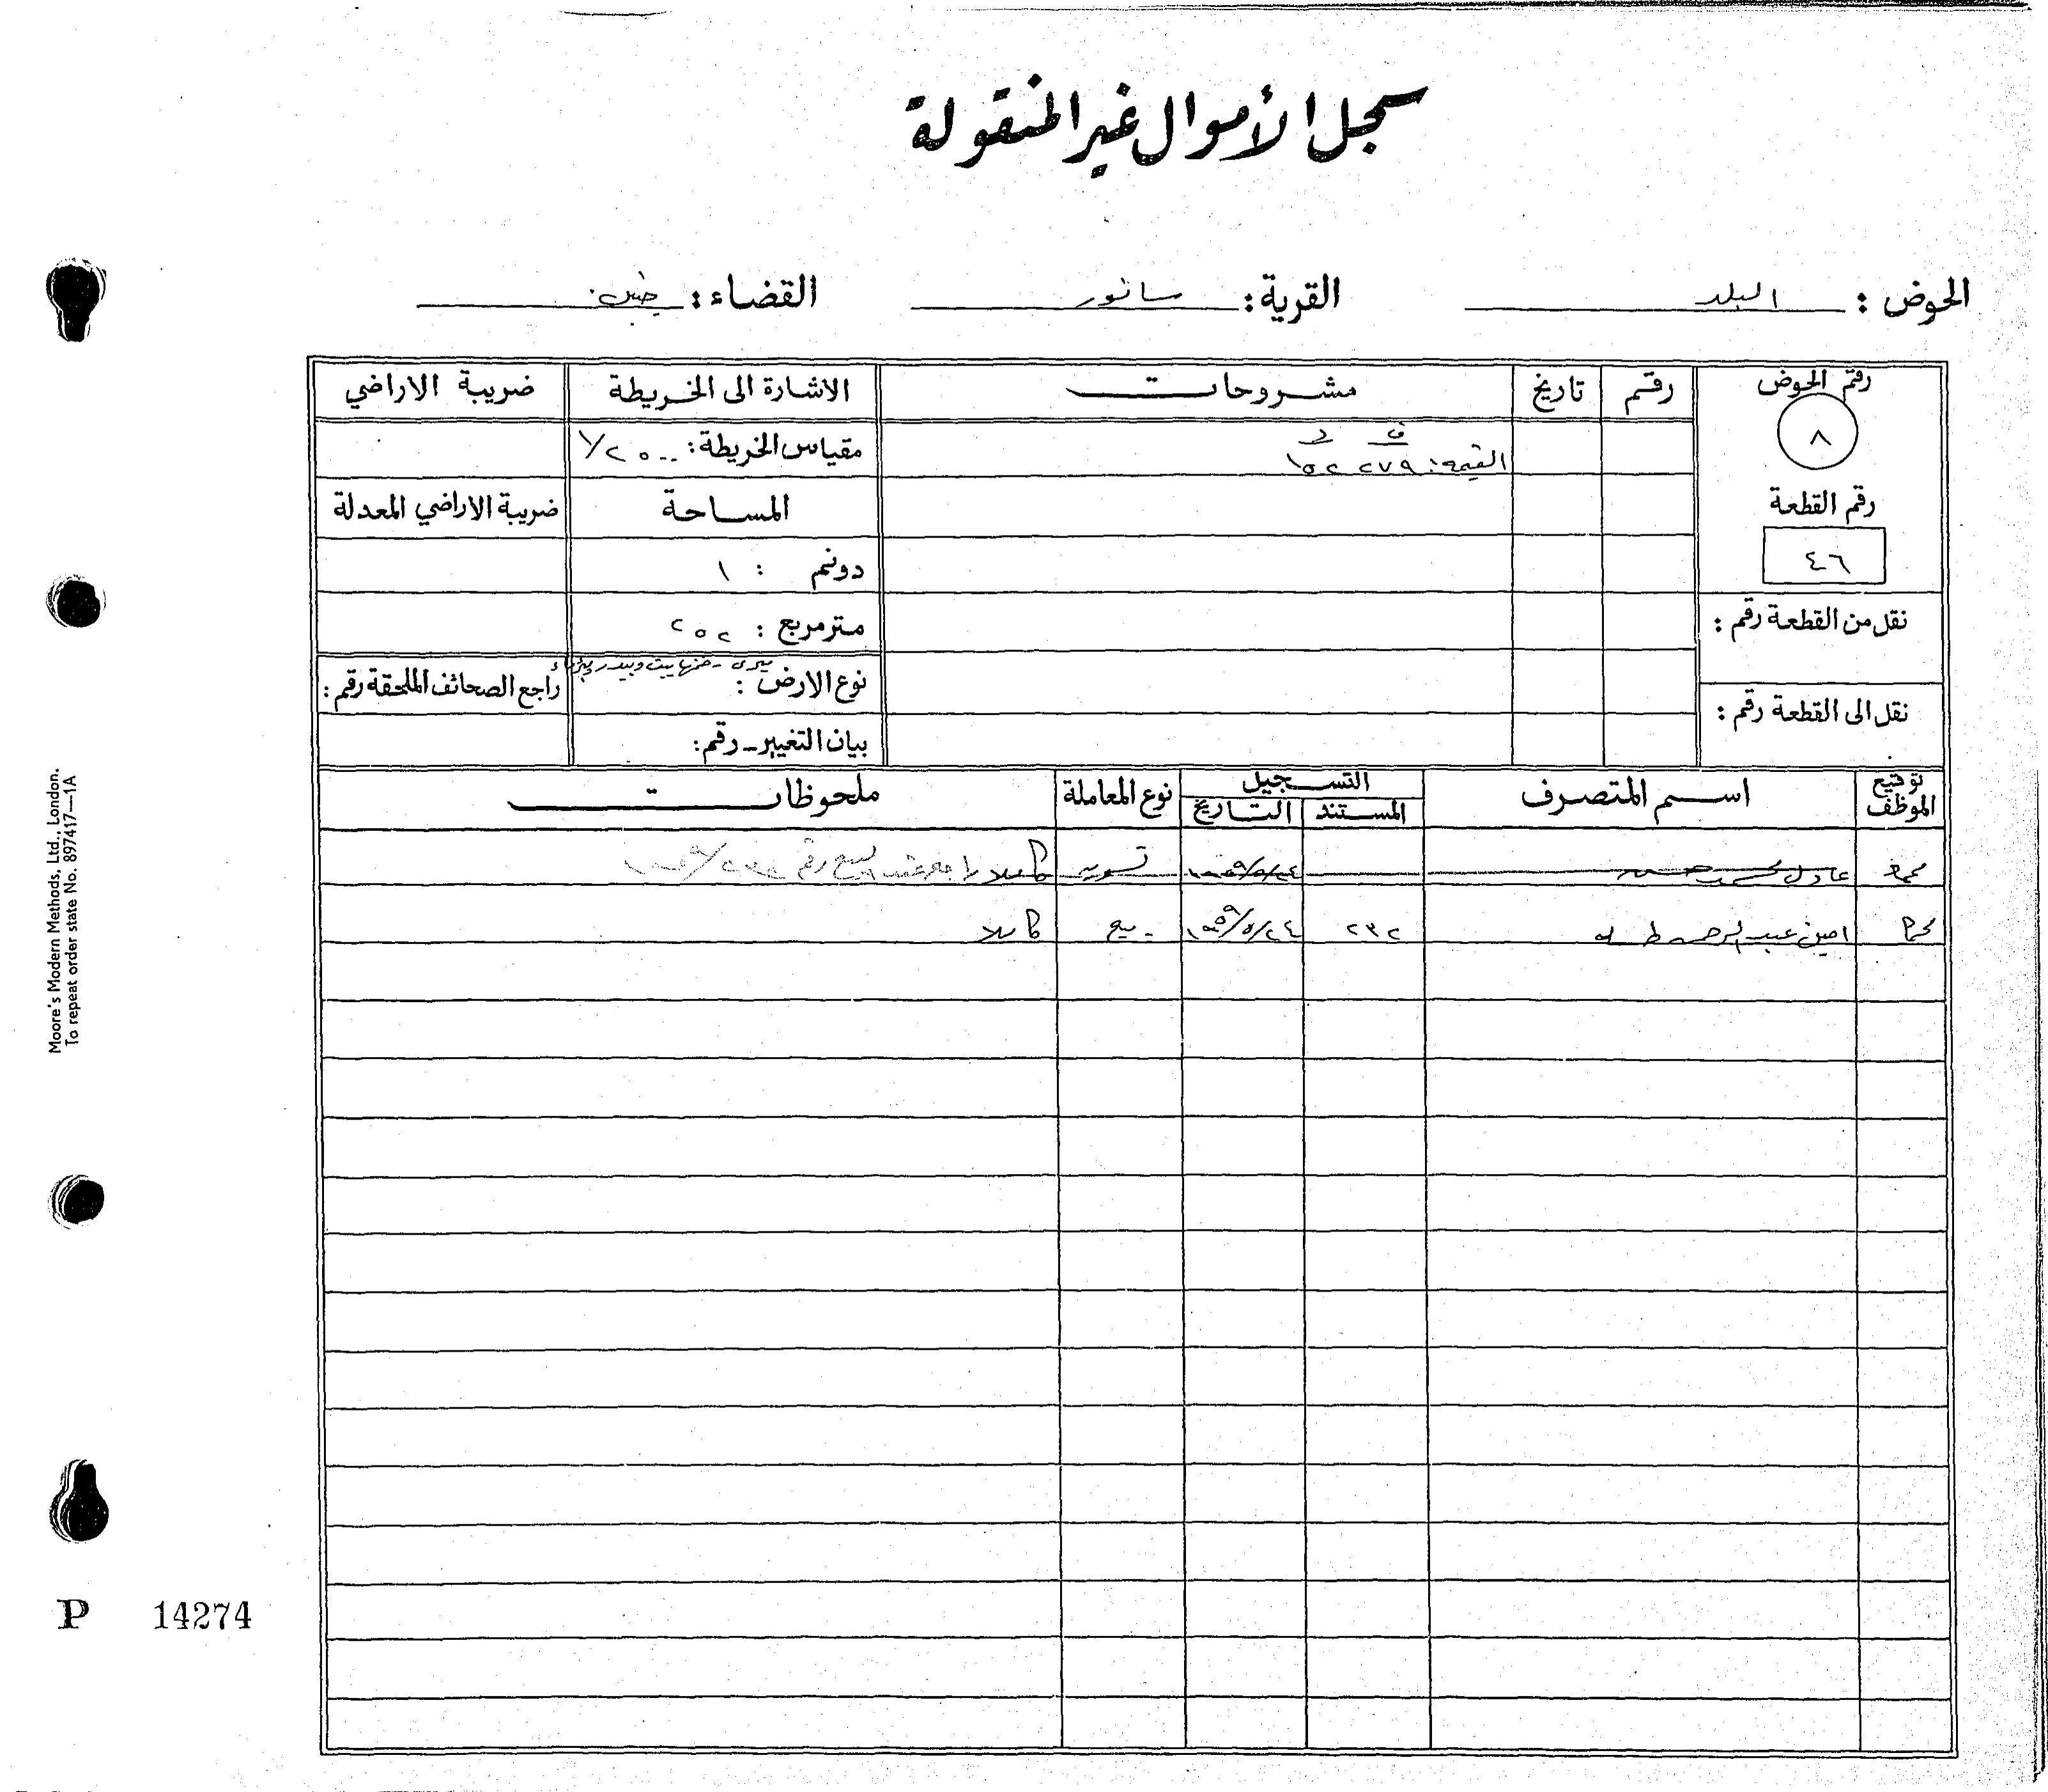 سجل الأموال غير المنقولة
الحوض : البلد القرية : سانور القضاء : جنين
رقم الحوض رقم تاريخ مشروحات الاشارة الى الخريطة ضريبة الاراضي
٨ ف د
القيمة : ٢٧٩ ١٥٢ مقياس الخريطة : ١/٢٥٠٠
رقم القطعة المساحة ضريبة الاراضي المعدلة
٤٦ دونم : ١
نقل من القطعة رقم : متر مربع : ٢٥٢
ميري - ضمنها بيت وبيدر
نوع الارض : راجع الصحائف الملحقة رقم :
نقل الى القطعة رقم :
بيان التغيير - رقم :
توقيع الموظف اسم المتصرف التسجيل نوع المعاملة ملحوظات
المستند التاريخ
عادل محمد حسن ١٩٥٩/٥/٢٤ تسوية كاملا
امين عبد الرحمن طه ٢٣٢ ١٩٥٩/٥/٢٤ بيع كاملا
Moore's Modern Methods, Ltd., London.
To repeat order state No. 897417—1A
P 14274